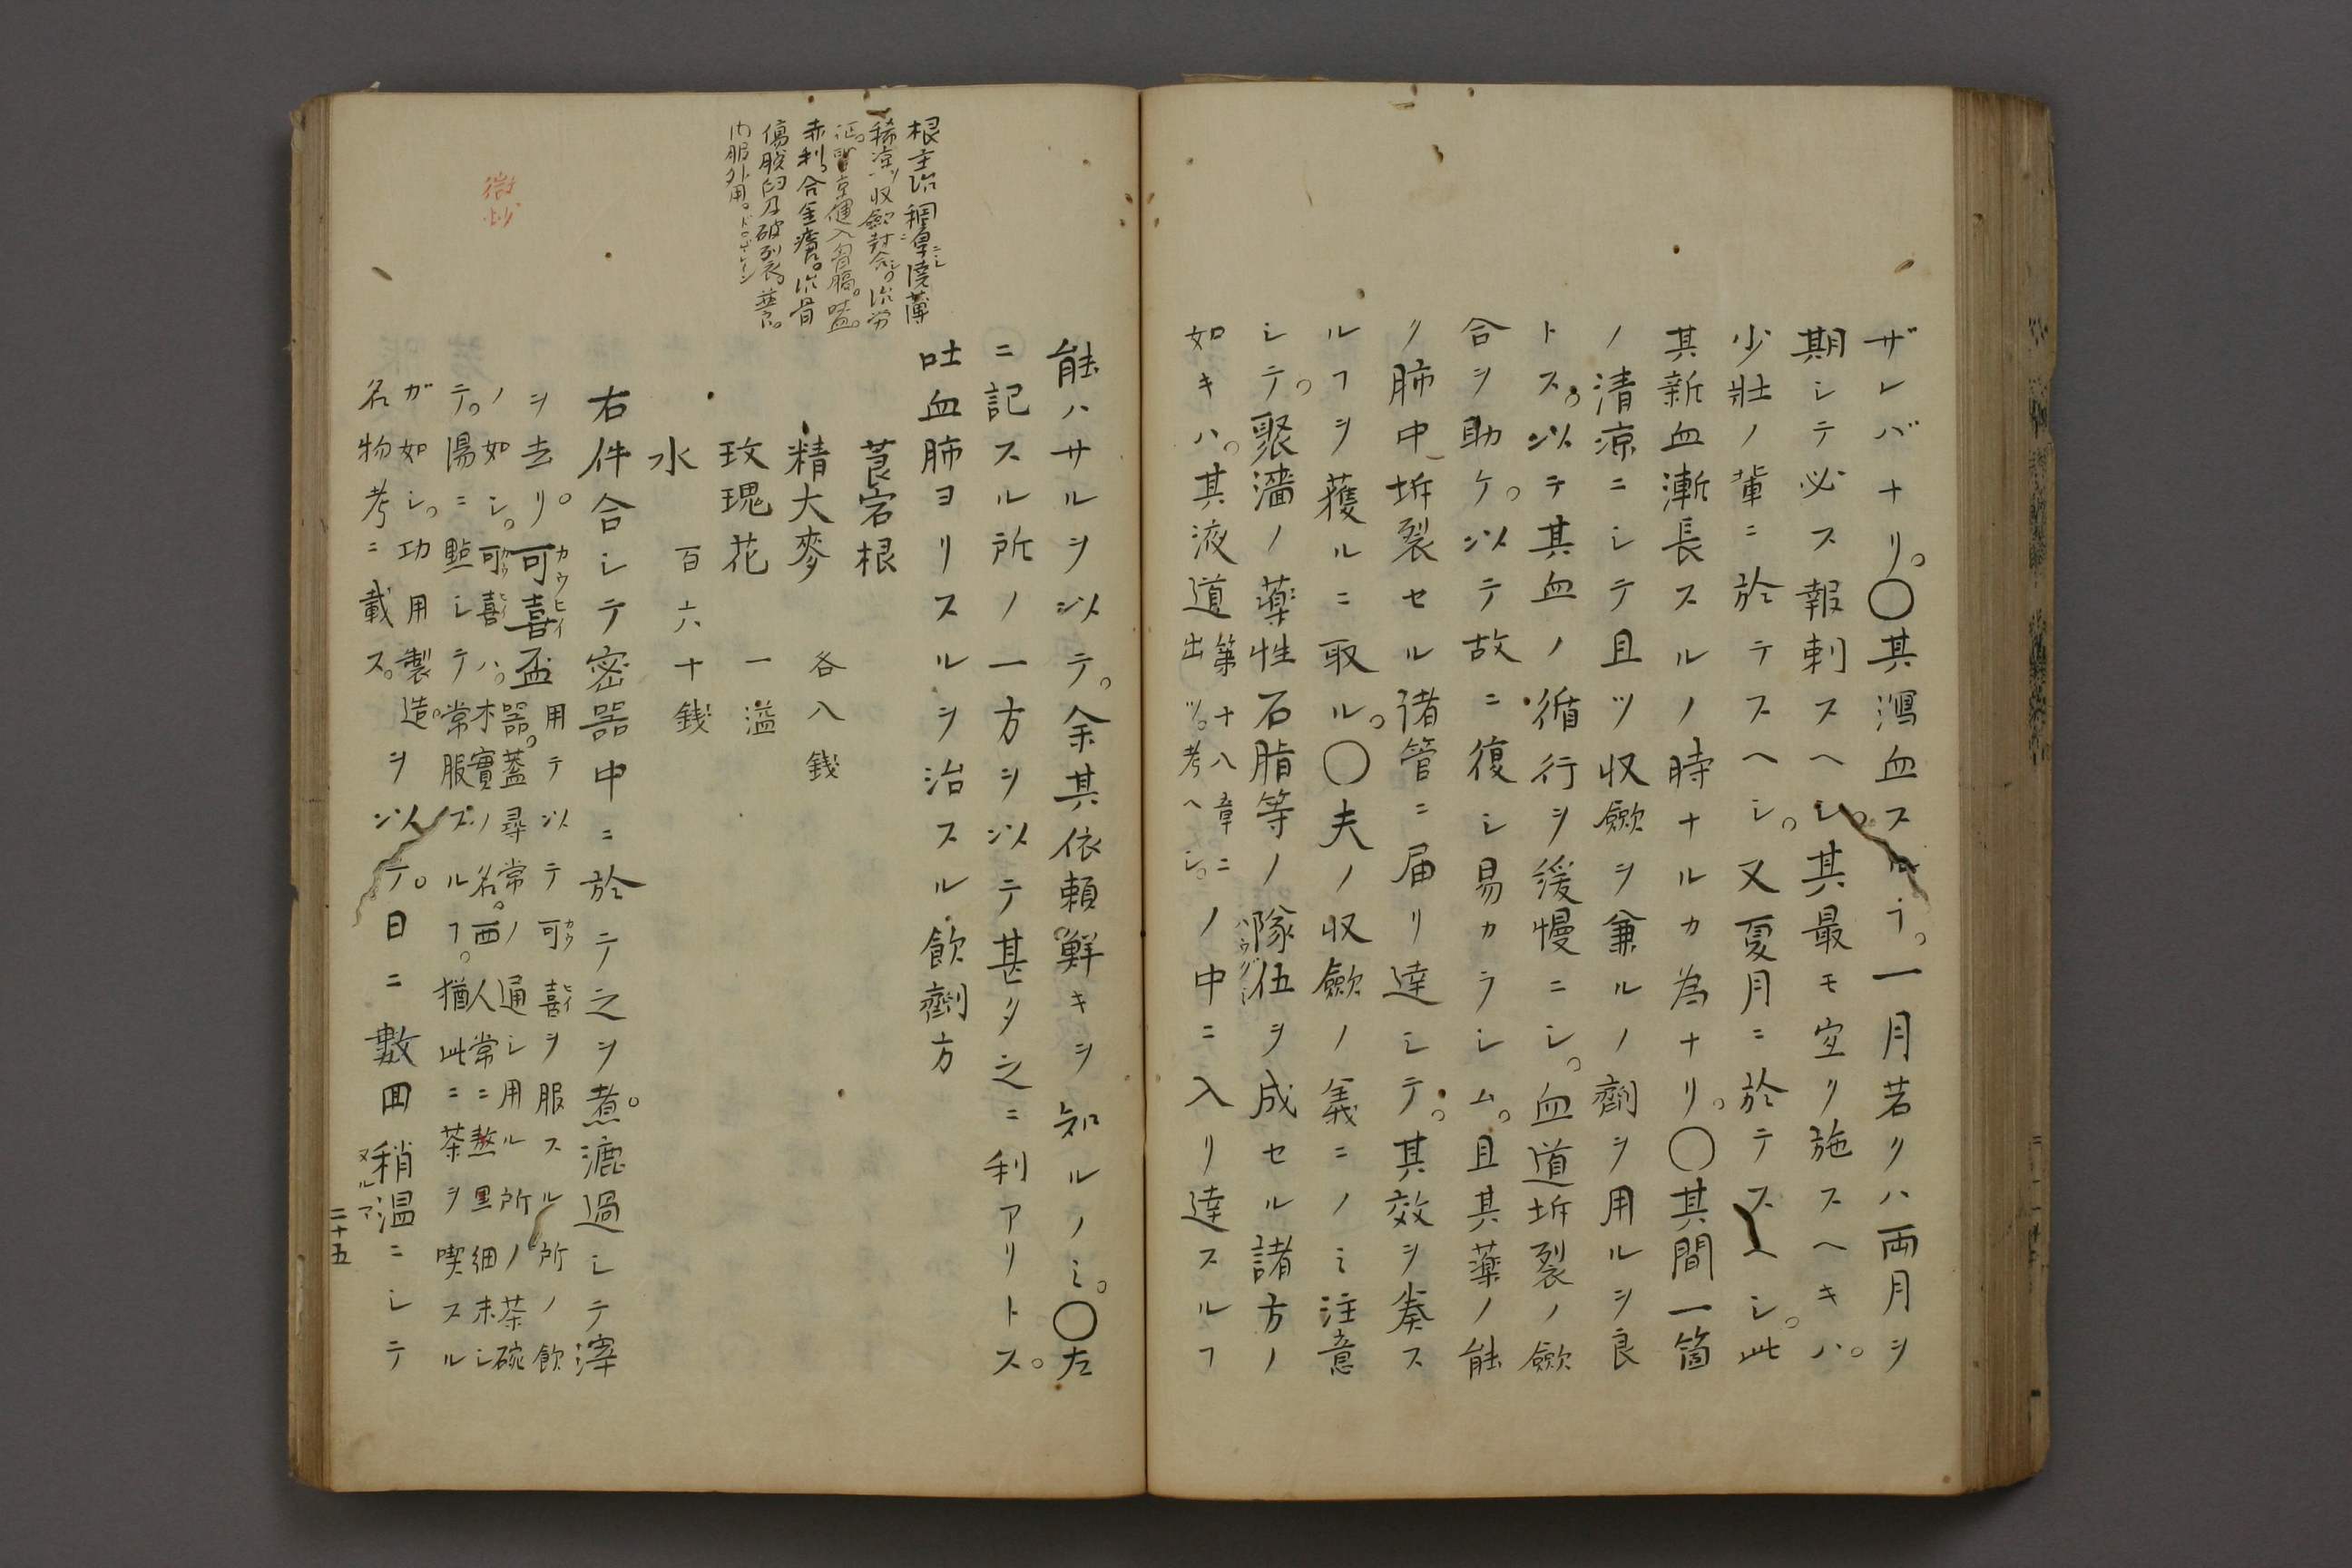 ザレバナリ。〇其瀉血スルヿ。一月若クハ両月ヲ
期シテ必ス報刺スヘシ。其最モ宜ク施スヘキハ。
少壯ノ輩ニ於テスヘシ。又夏月ニ於テスヘシ。此
其新血漸長スルノ時ナルカ為ナリ。〇其間一箇
ノ清凉ニシテ且ツ收斂ヲ兼ルノ劑ヲ用ルヲ良
トス。以テ其血ノ循行ヲ緩慢ニシ。血道坼裂ノ斂
合ヲ助ケ。以テ故ニ復シ易カラシム。且其藥ノ能
ク肺中坼裂セル諸管ニ届リ達シテ。其效ヲ奏ス
ルヿヲ獲ルニ取ル。〇夫ノ收斂ノ義ニノミ注意
シテ。聚濇ノ藥性石脂等ノ隊伍ヲ成セル諸方ノ
如キハ。其液道第十八章ニ出ツ。考ヘシ。ノ中ニ入リ達スルヿ
能ハサルヲ以テ。余其依頼鮮キヲ知ルノミ。〇左
ニ記スル所ノ一方ヲ以テ甚タ之ニ利アリトス。
吐血肺ヨリスルヲ治スル飲劑方
莨宕根
精大麥 各八銭
玫瑰花 一溢
水 百六十銭
右件合シテ密器中ニ於テ之ヲ煮。漉過シテ滓
ヲ去リ。可喜盃用テ以テ可喜ヲ服スル所ノ飲
器。蓋尋常ノ通シ用ル所ノ茶碗
ノ如シ。可喜ハ。木實ノ名。西人常ニ熬黒細末シ
テ。湯ニ點シテ常服スルヿ。猶此ニ茶ヲ喫スル
ガ如シ。功用製造。
名物考ニ載ス。ヲ以テ。日ニ數回稍温ニシテ
二十五
根主治稠厚
赤利。合金瘡。治骨
傷脱臼及破裂。
内服外用。
微炒